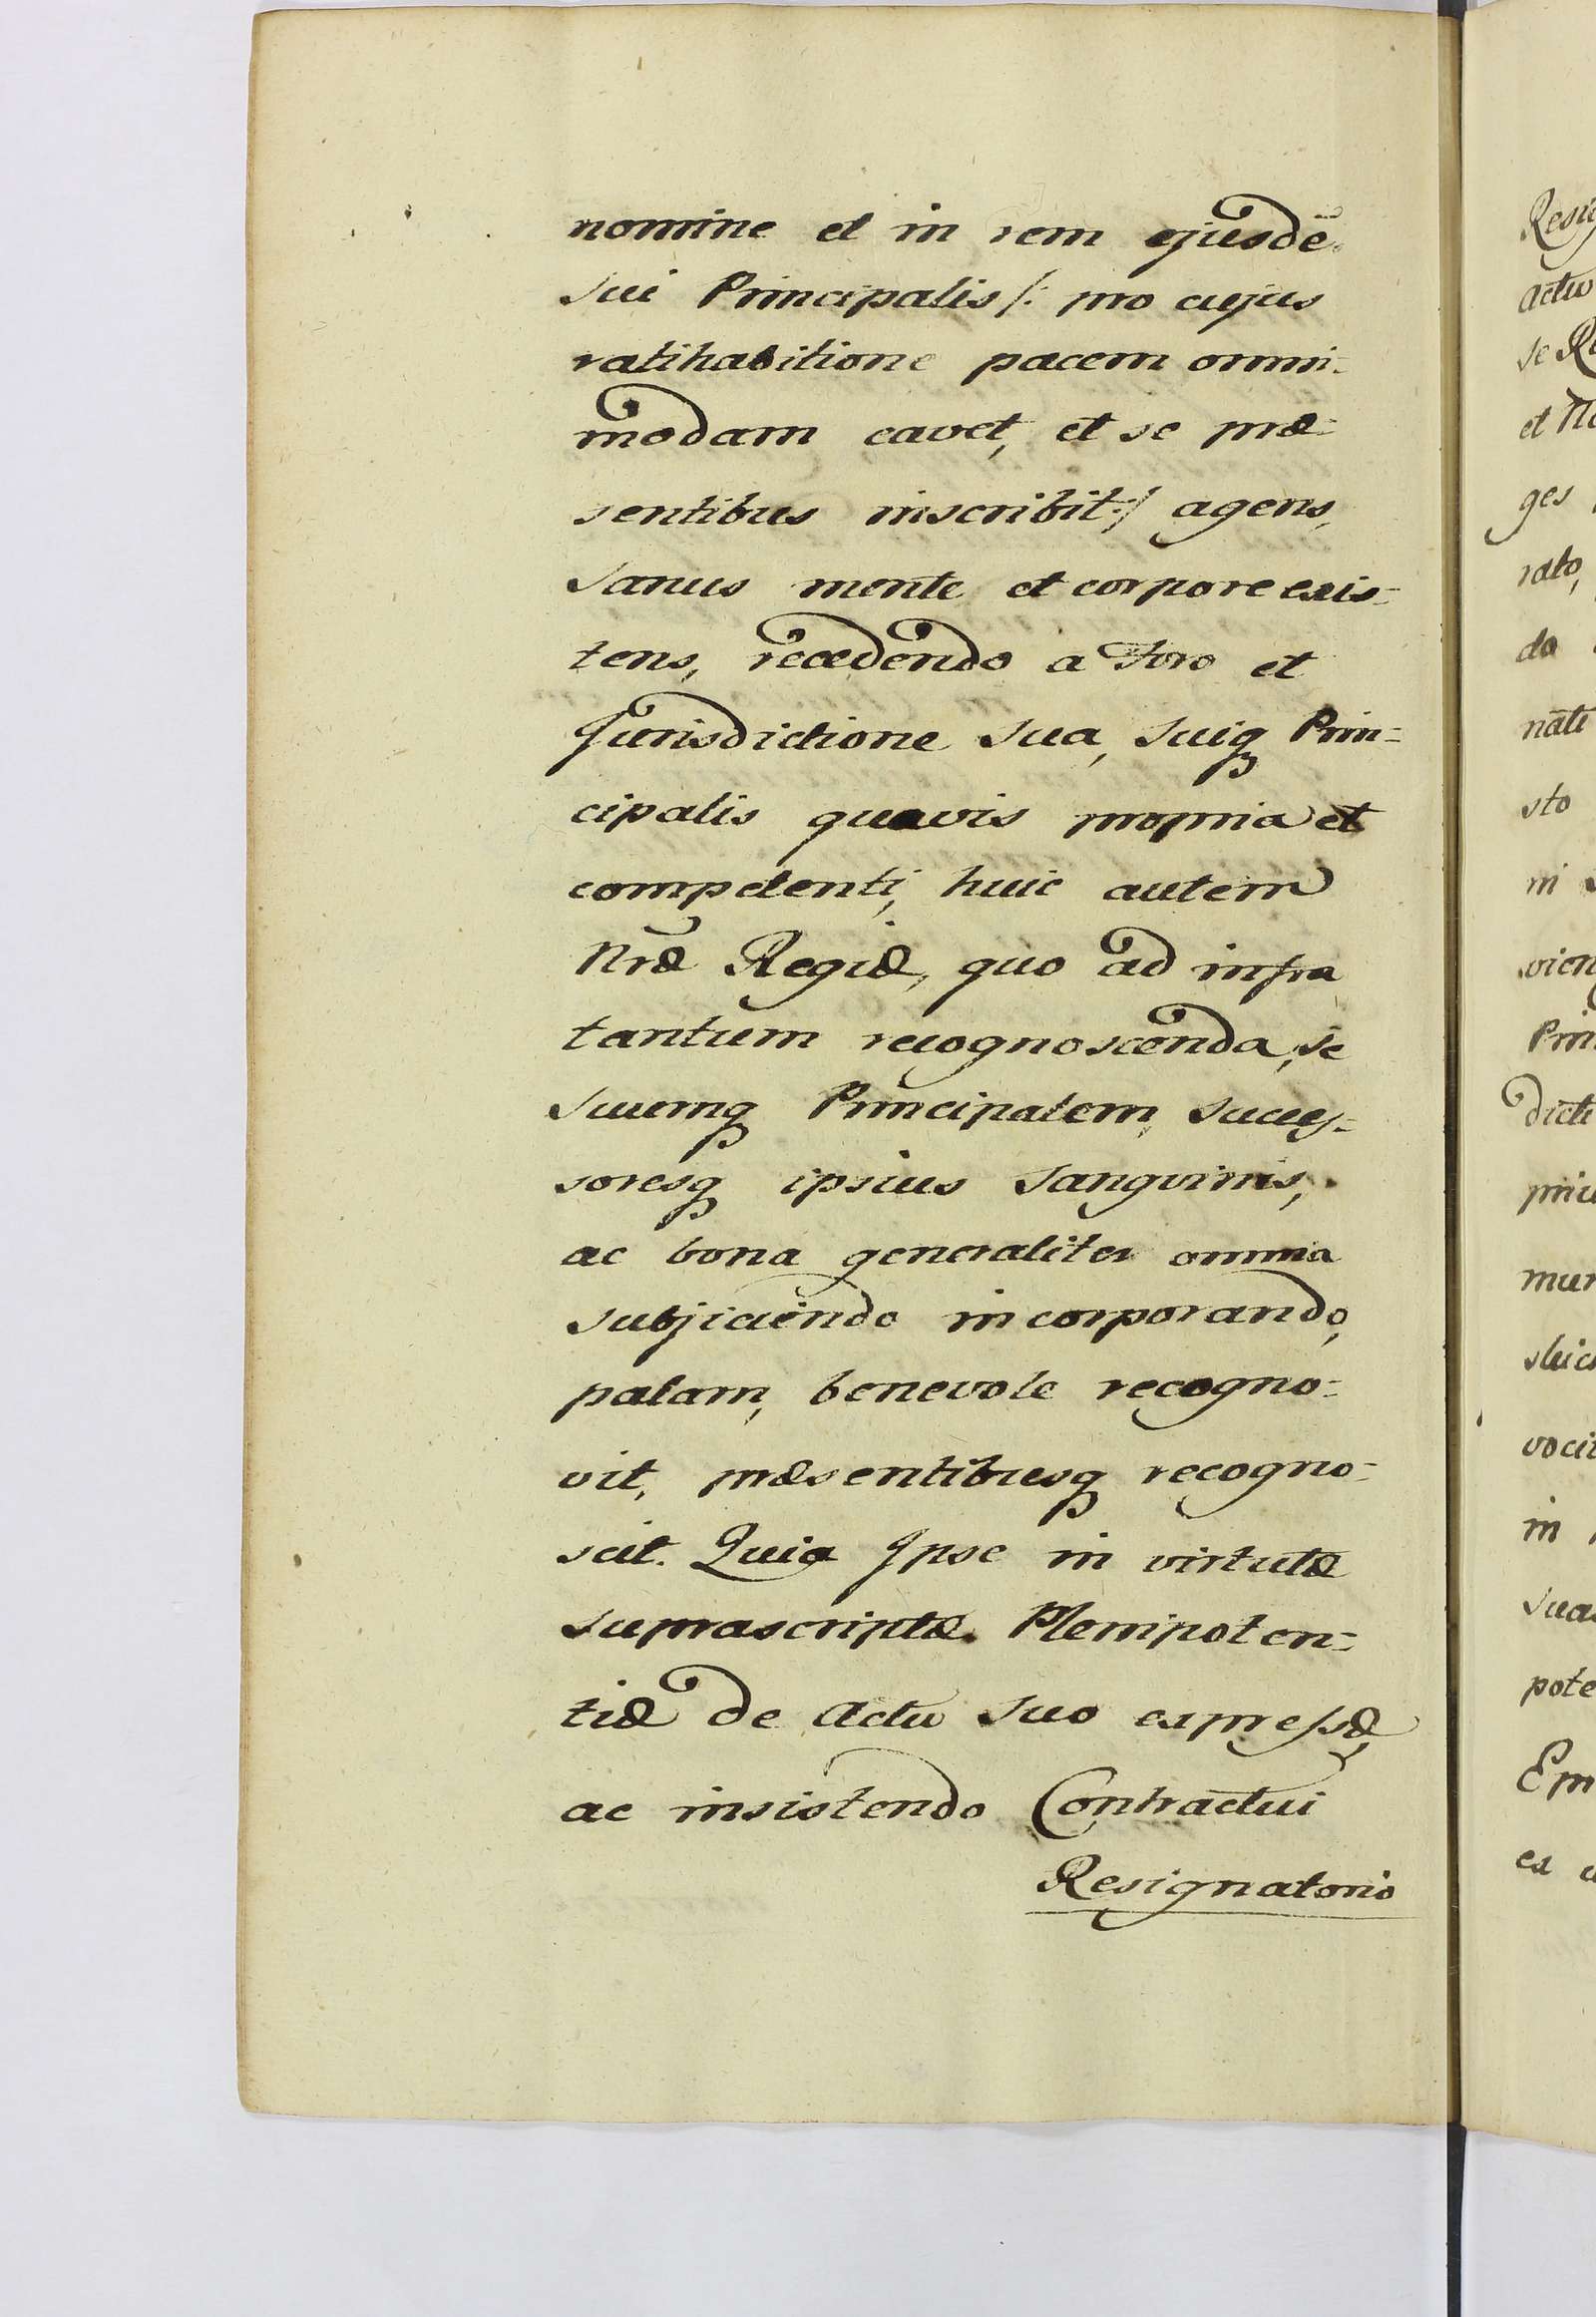 nomine et in rem ejusdē
sui Principalis /: pro cujus
ratihabitione pacem omni-
modam cavet, et se præ-
sentibus inscribit :/ agens,
sanus mente et corpore exis-
tens, recedendo a Foro et
Jurisdictione sua, suiq Prin-
cipalis quavis propria et
competenti, huic autem
Nræ Regiæ, quo ad infra
tantum recognoscenda, se
suumq Principalem, succes-
soresq ipsius sangvinis,
ac bona generaliter omnia
subjiciendo incorporando,
palam, benevole recogno-
vit, præsentibusq recogno-
scit. Quia Ipse in virtutæ
suprascriptæ Plenipoten-
tiæ de Actu suo expressæ,
ac insistendo Contractui
Resignatorio
Resig
actu
se
et
ges
rato,
do
nāti
sto
ni
vien
Prin
dicti
mun
voci
in
suas
pote
ex